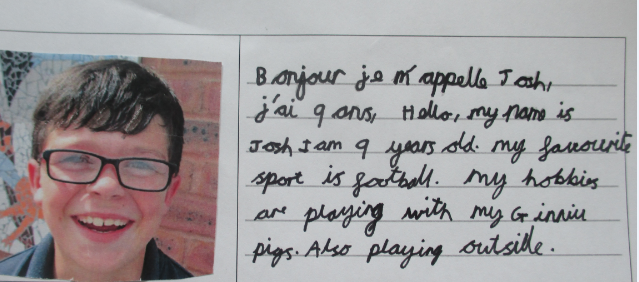 Bonjour je m'appelle Josh,
j'ai 9 ans, Hallo, my name is
Josh I am 9 years old. my favourite
sport is football. My hobbies
are playing with my Ginniu
pigs. Also playing outside.